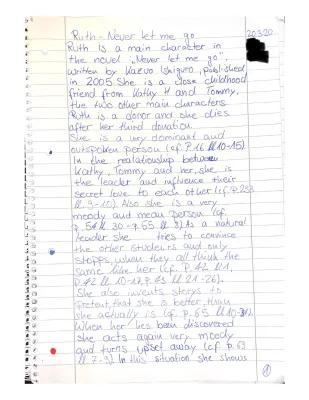 Ruth - Never let me go 20.3.20
Ruth is a main character in
the novel „Never let me go",
written by Kazuo Ishiguro, published
in 2005. She is a close childhood
friend from Kathy H and Tommy,
the two other main characters.
Ruth is a donor and she dies
after her third donation.
She is a very dominant and
outspoken person (cf. P.16 ll.10-15).
In the realationship between
Kathy, Tommy and her, she is
the leader and influence their
secret love to each other (cf. p.253
ll. 9-10). Also she is a very
moody and mean person (cf.
p. 54 ll. 30 - p. 55 ll. 8). As a natural
leader she tries to convince
the other students and only
stopps, when they all think the
same like her (cf. p.42 ll.1,
p.42 ll. 10-17, p.43 ll. 21-26).
She also invents storys to
pretent, that she is better, than
she actually is (cf. p.65 ll.10-31).
When her lies been discovered
she acts again very moody
and turns upset away (cf. p.69
ll. 7-9). In this situation she shows
1